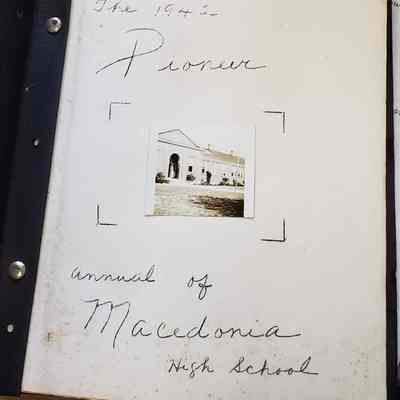 The 1942
Pioneer
annual of
Macedonia
High School